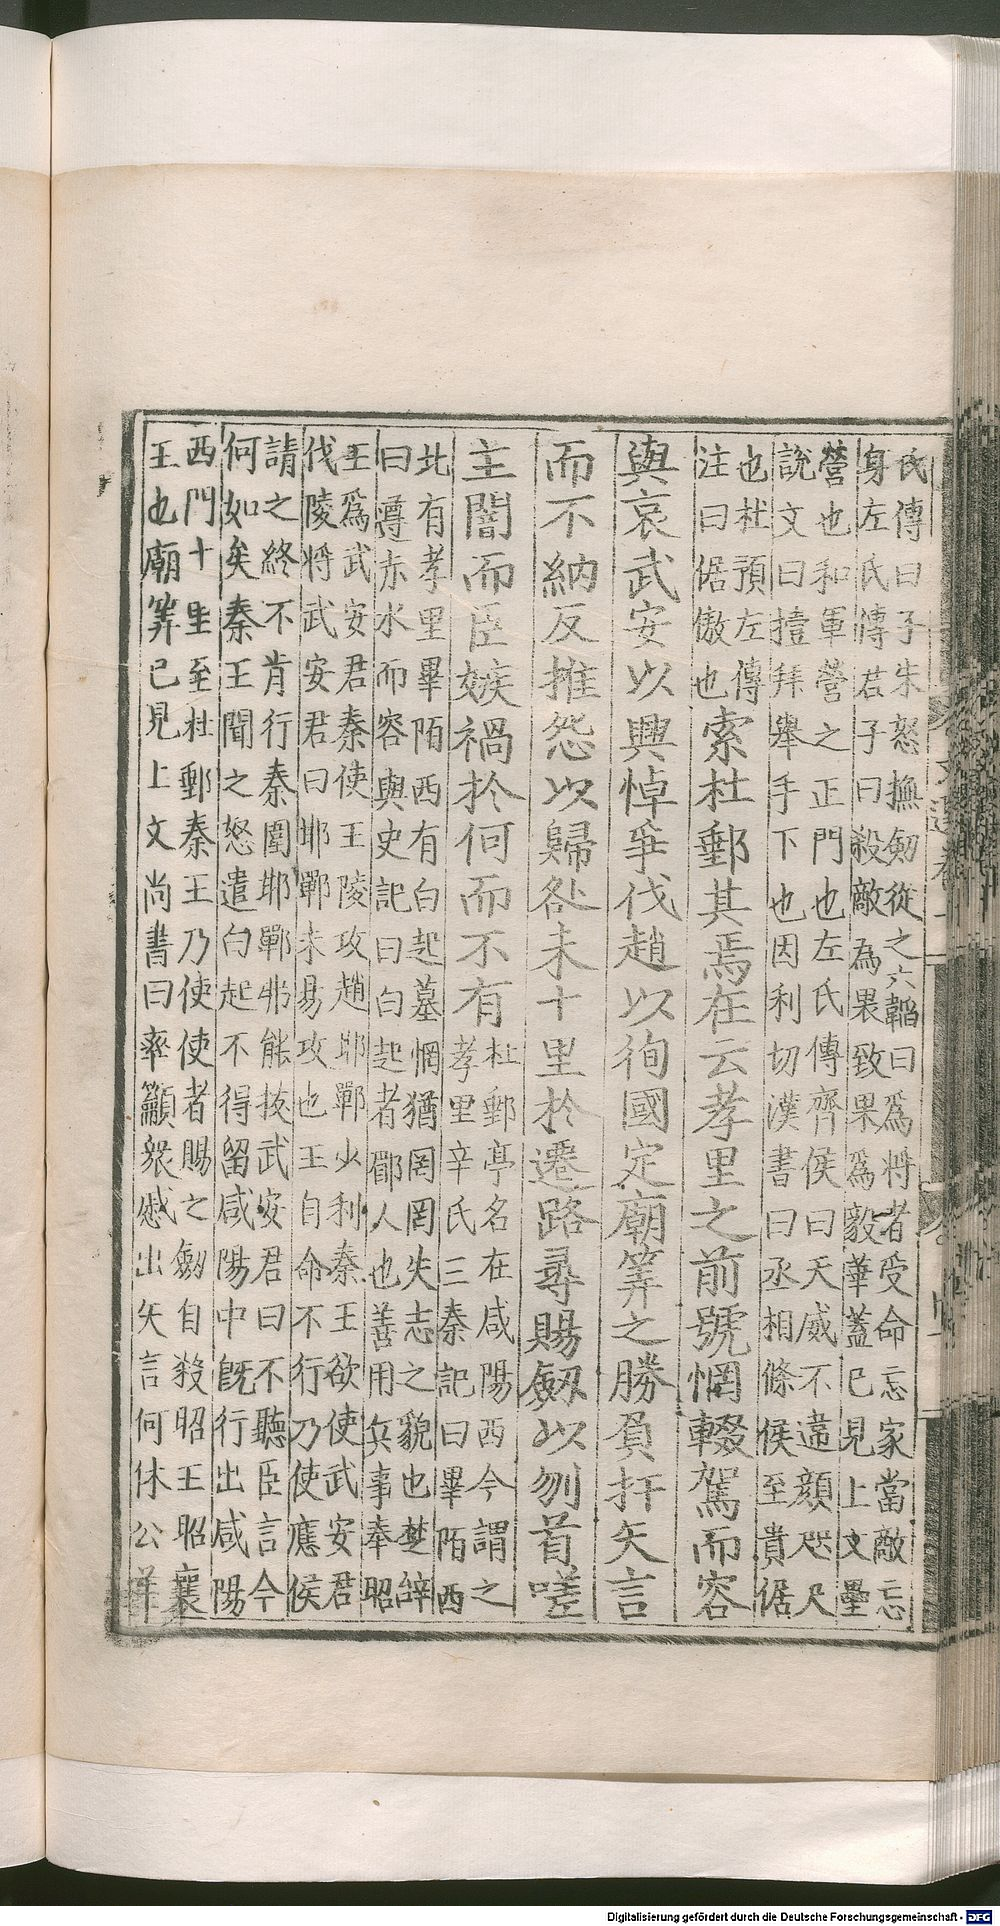 氏傳曰子朱怒撫劒從之六韜曰爲將者受命忘家當敵忘
身左氏傳君子曰殺敵為果致果爲毅華蓋已見上文壘
營也和軍營之正門也左氏傳齊侯曰天威不違顔咫尺
說文曰撎拜舉手下也因利切漢書曰丞相條侯至貴倨
也杜預左傳
注曰倨傲也
索杜郵其焉在云孝里之前號惘輟駕而容
與哀武安以興悼爭伐趙以徇國定廟筭之勝負扞矢言
而不納反推怨以歸咎未十里於遷路尋賜劒以刎首嗟
主闇而臣嫉禍於何而不有
杜郵亭名在咸陽西今謂之
孝里辛氏三秦記曰畢陌西
北有孝里畢陌西有白起墓惘猶罔罔失志之貌也楚辭
曰遵赤水而容與史記曰白起者郿人也善用兵事奉昭
王爲武安君秦使王陵攻趙邯鄲少利秦王欲使武安君
伐陵將武安君曰邯鄲未易攻也王自命不行乃使應侯
請之終不肯行秦圍邯鄲弗能拔武安君曰不聽臣言今
何如矣秦王聞之怒遣白起不得留咸陽中旣行出咸陽
西門十里至杜郵秦王乃使使者賜之劒自殺昭王昭襄
王也廟筭已見上文尚書曰率籲衆慼出矢言何休公羊
Digitalisierung gefördert durch die Deutsche Forschungsgemeinschaft - DFG